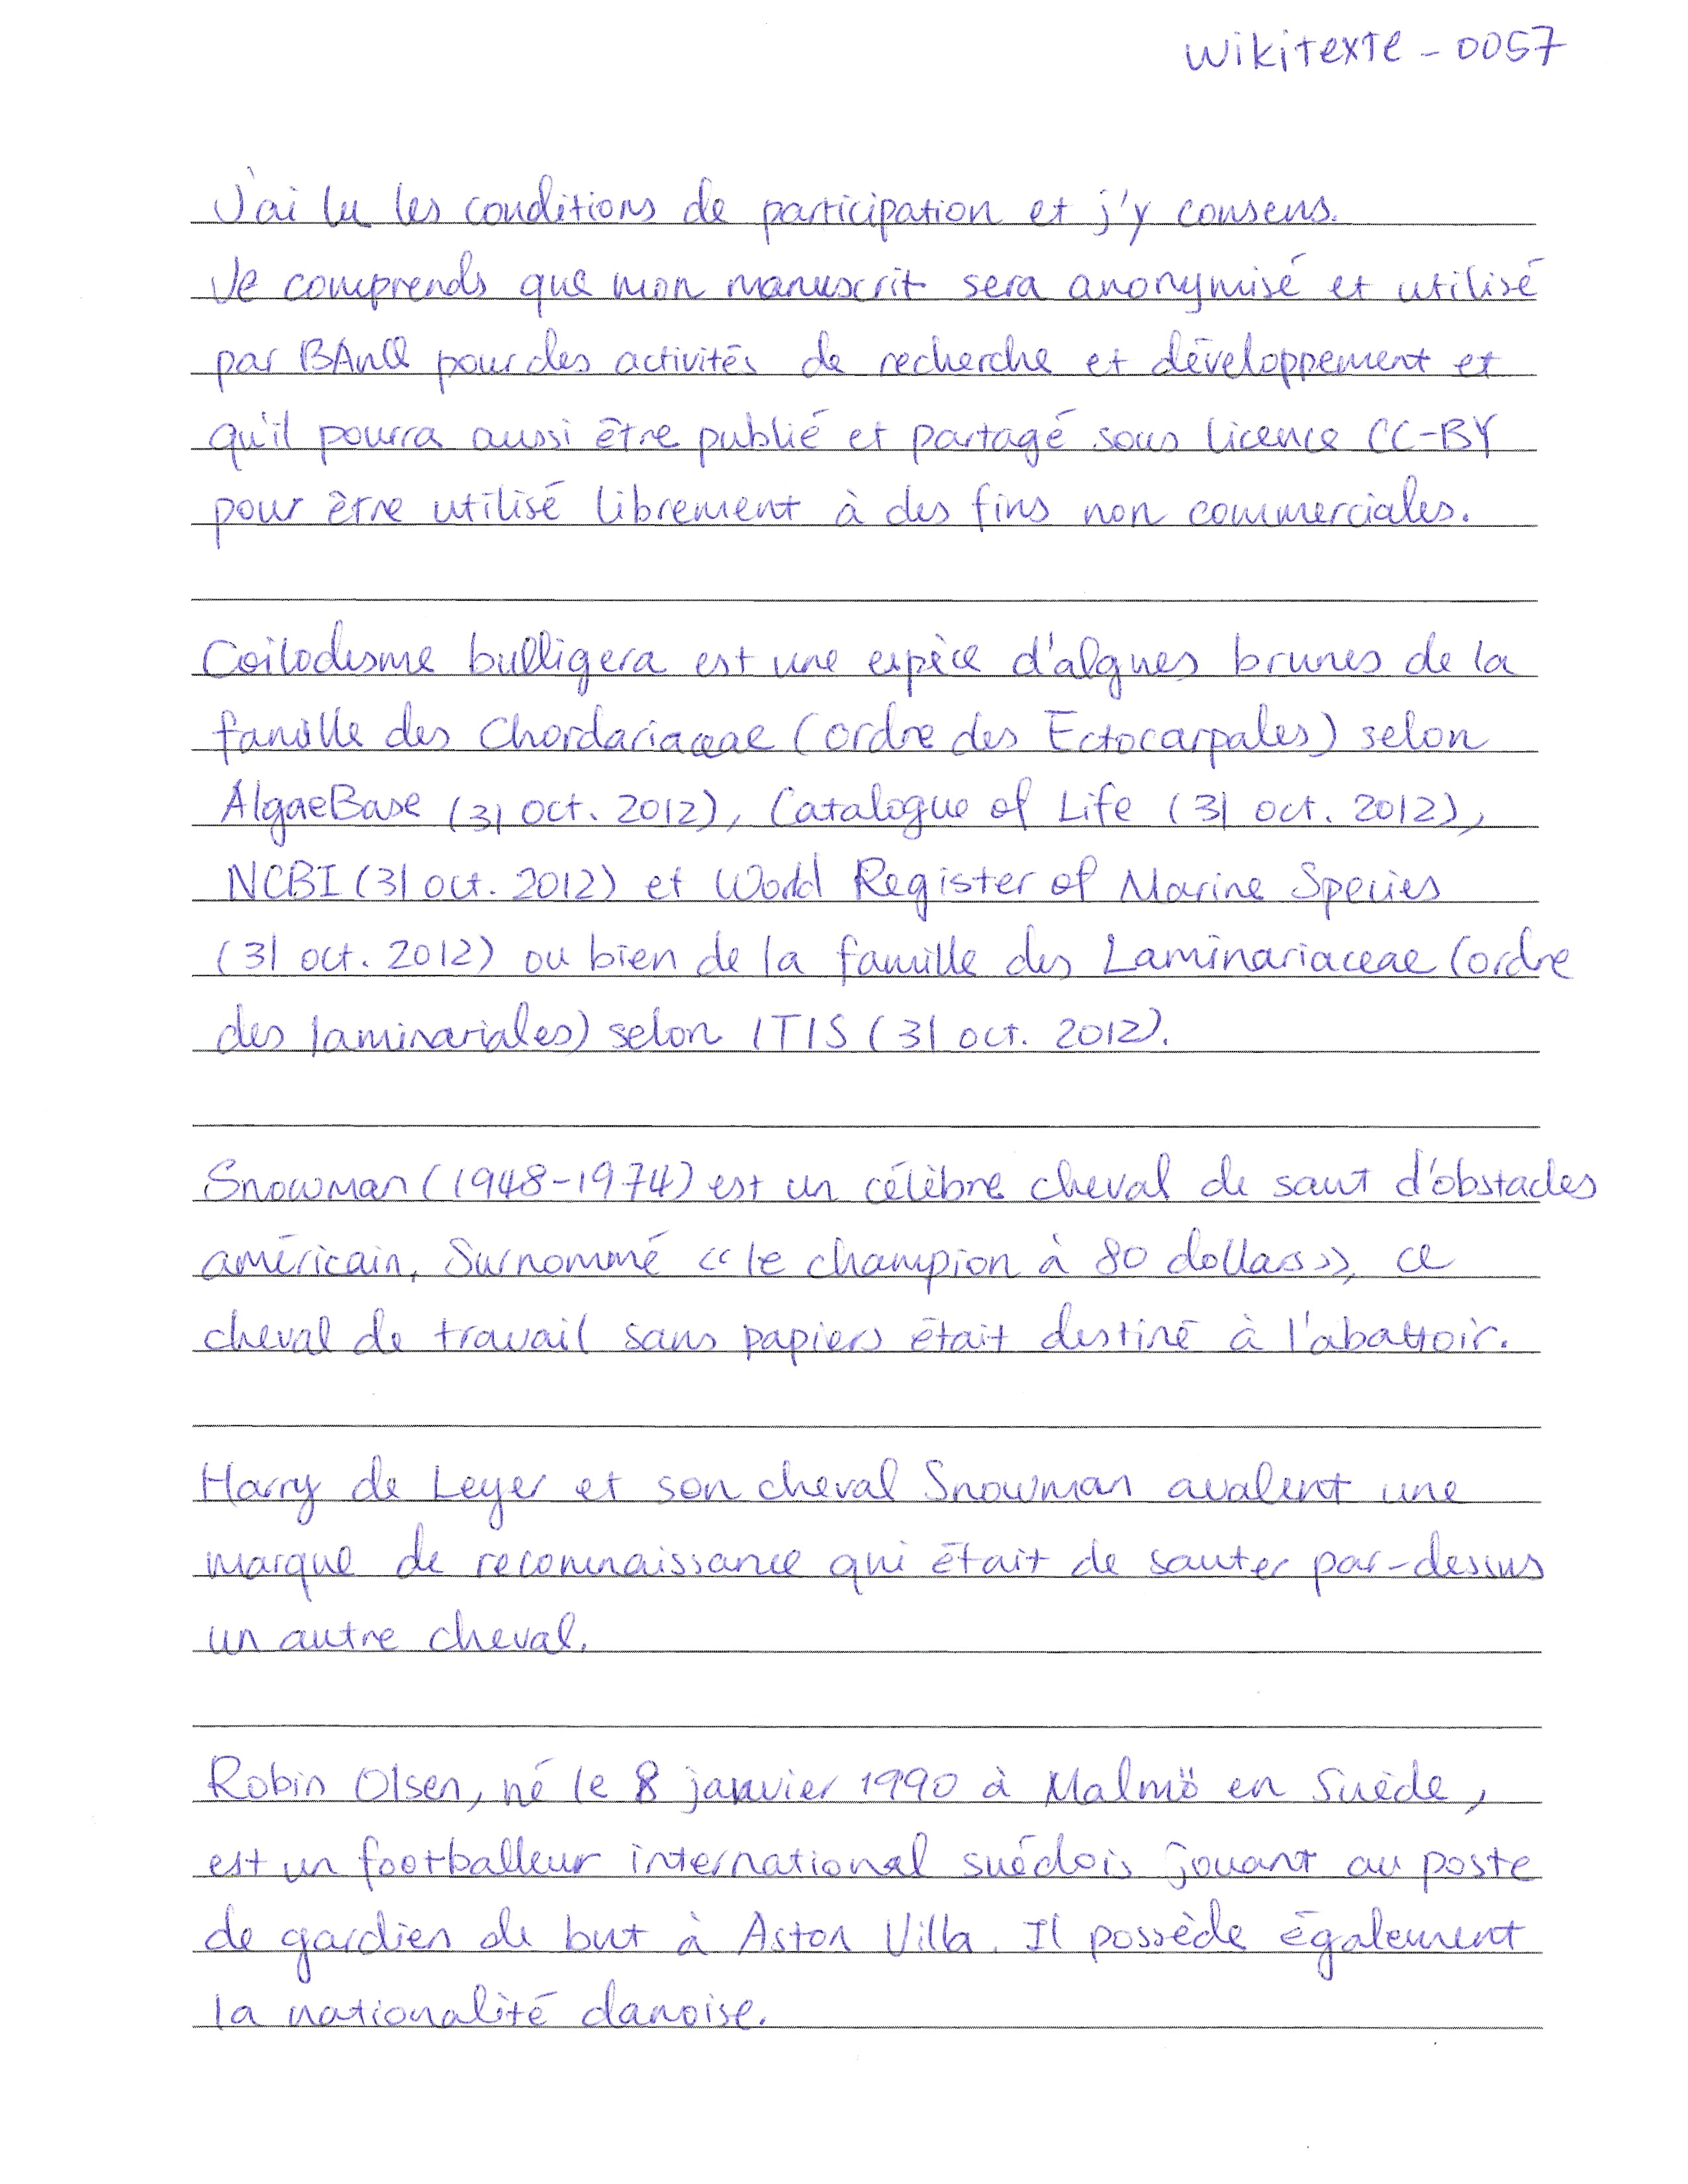 Wikitexte - 0057
J'ai lu les conditions de participation et j'y consens.
Je comprends que mon manuscrit sera anonymisé et utilisé
par BAnQ pour des activités de recherche et développement et
qu'il pourra aussi être publié et partagé sous licence CC-BY
pour être utilisé librement à des fins non commerciales.
Coilodesme bulligera est une espèce d'algues brunes de la
famille des Chordariaceae (ordre des Ectocarpales) selon
AlgaeBase (31 oct. 2012), Catalogue of Life (31 oct. 2012),
NCBI (31 oct. 2012) et World Register of Marine Species
(31 oct. 2012) ou bien de la famille des Laminariaceae (ordre
des laminariales) selon ITIS (31 oct. 2012).
Snowman (1948-1974) est un célèbre cheval de saut d'obstacles
américain. Surnommé « le champion à 80 dollars », ce
cheval de travail sans papiers était destiné à l'abattoir.
Harry de Leyer et son cheval Snowman avaient une
marque de reconnaissance qui était de sauter par-dessus
un autre cheval.
Robin Olsen, né le 8 janvier 1990 à Malmö en Suède,
est un footballeur international suédois jouant au poste
de gardien de but à Aston Villa. Il possède également
la nationalité danoise.